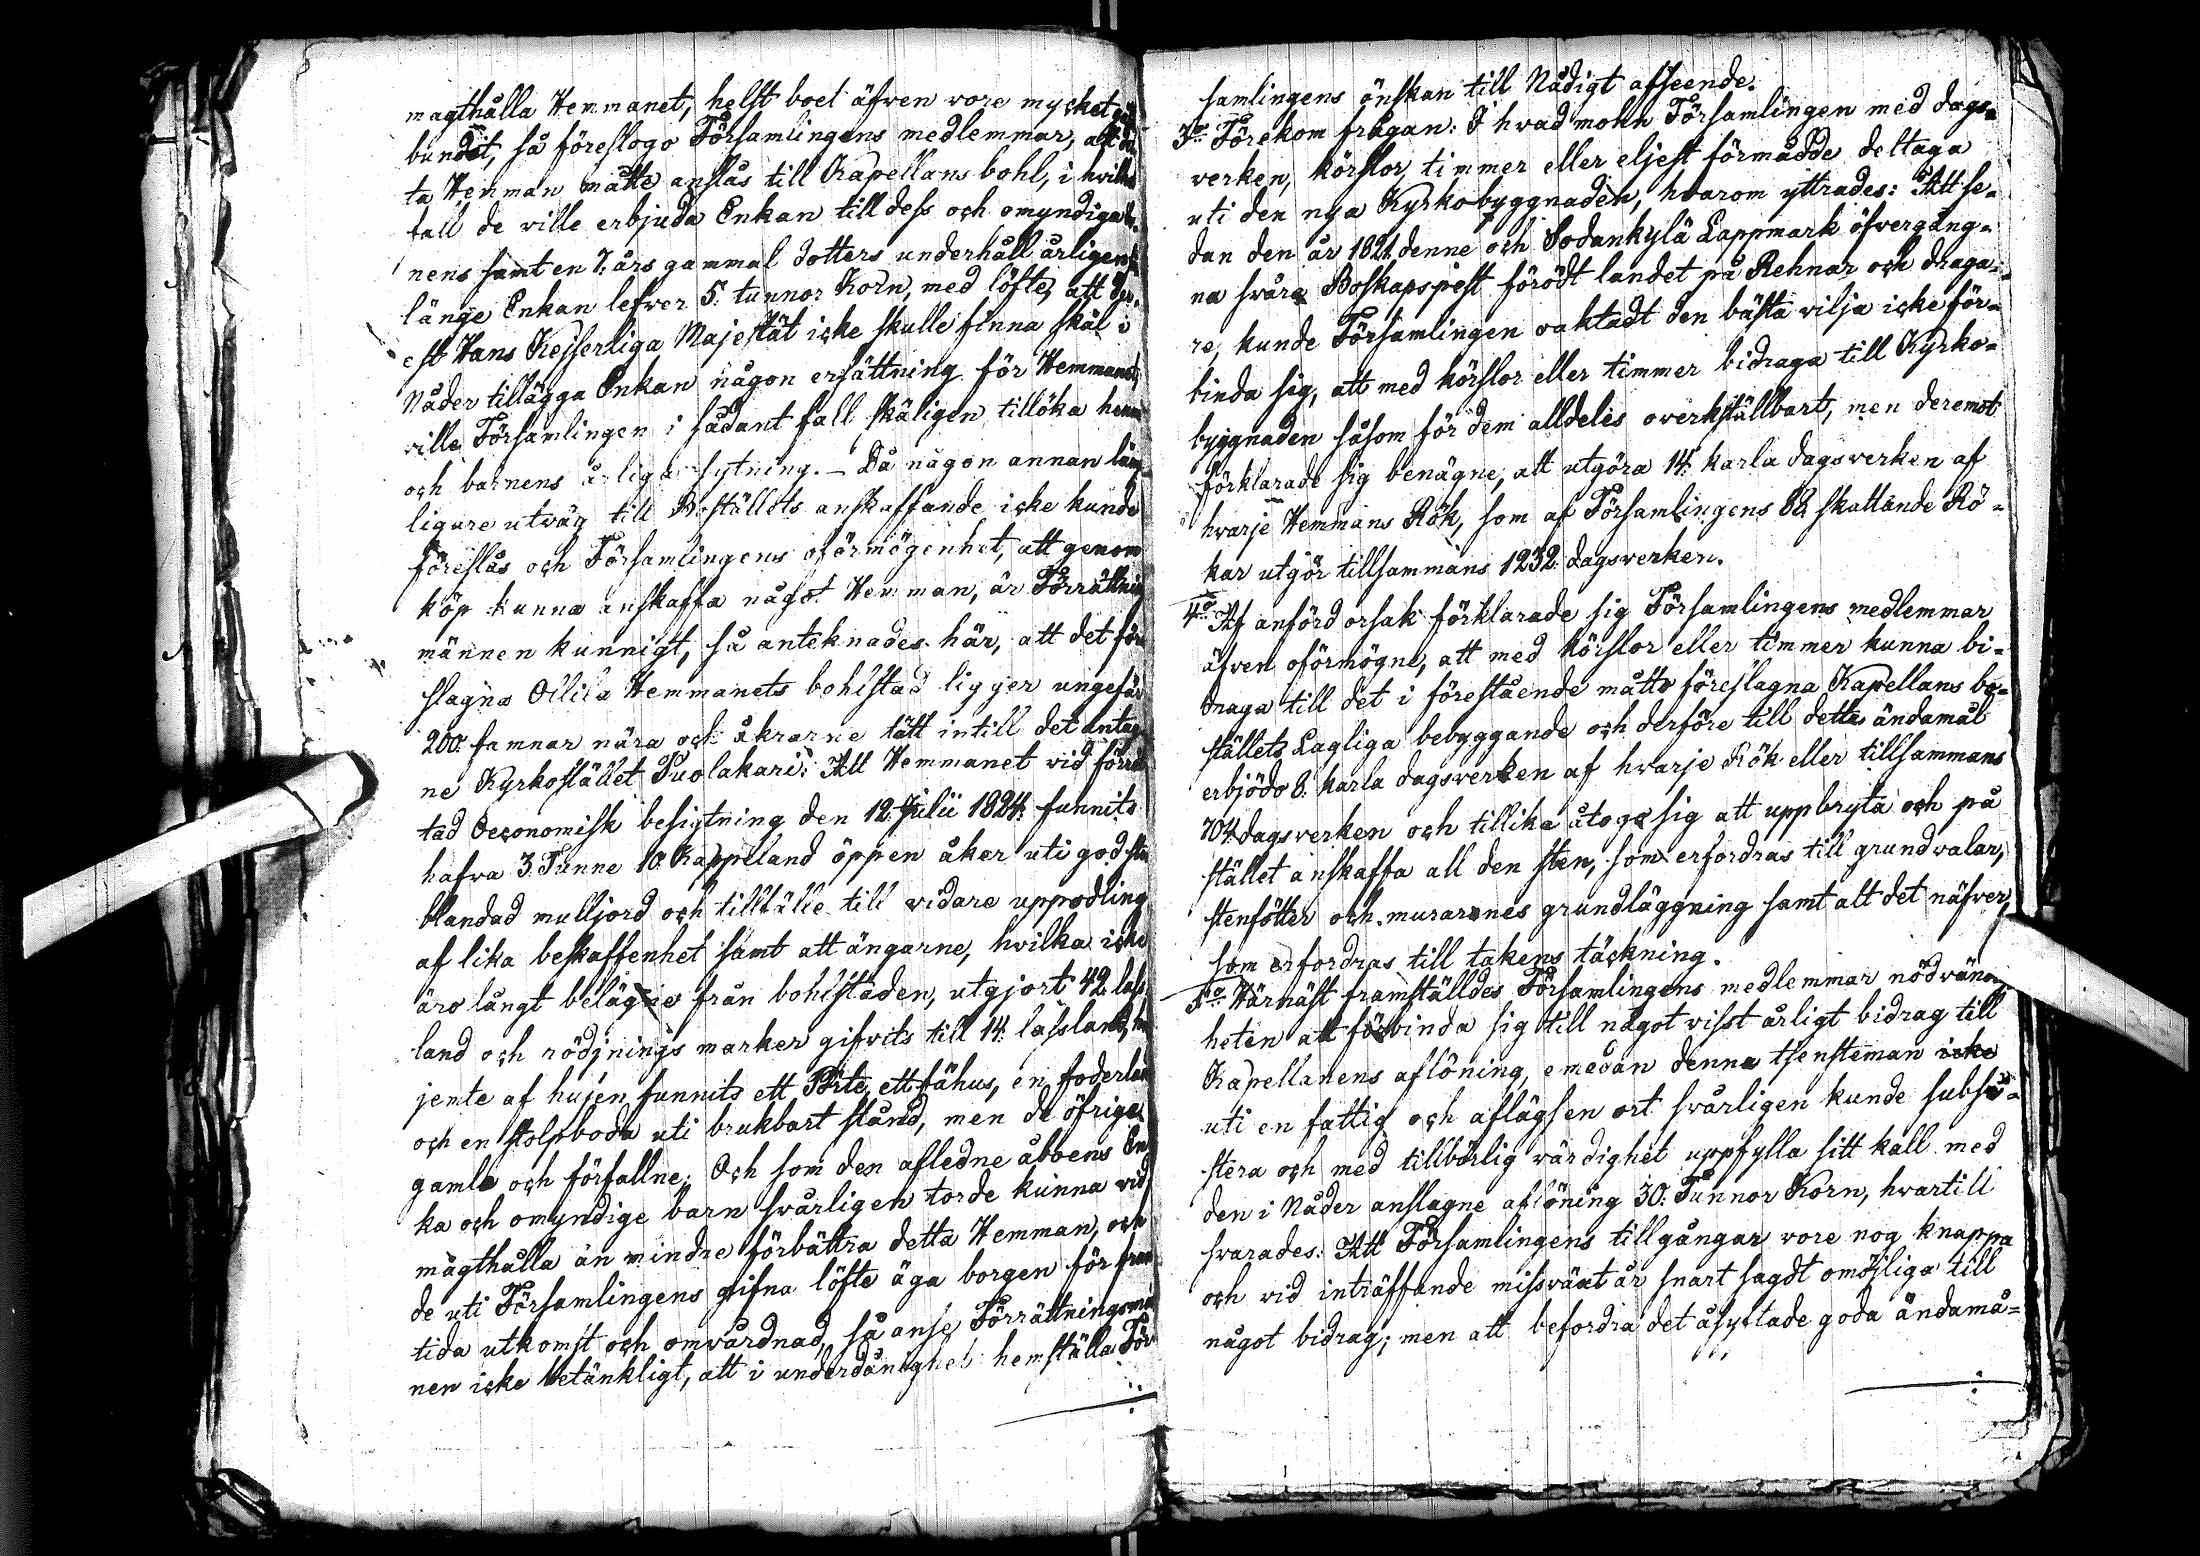 magthålla Hemmanet, helst boet äfven vore mycket
bundet, så föreslogo Församlingens medlemmar, att
ta Hemman måtte anslås till Kapellans bohl, i hvilket
fall de ville erbjuda Enkan till dess och omyndiga
nens samt en 7. års gammal dotters underhåll årligen
länge Enkan lefver 5. tunnor Korn, med löfte, att der¬
est Hans Kejserliga Majestät icke skulle finna skäl i
Nåder tillägga Enkan någon ersättning för Hemmanet,
ville Församlingen i sådant fall skäligen tillöka hennes
och barnens årliga sytning. – Då någon annan lämp¬
ligare utväg till Boställets anskaffande icke kunde
föreslås och Församlingens oförmögenhet, att genom
köp kunna anskaffa något Hemman, är Förrättnings
männen kunnigt, så anteknades här, att det före
slagna Oilila Hemmanets bohlstad ligger ungefär
200. famnar nära och åkrarne tätt intill det antag
ne Kyrkostället Puolakari; Att Hemmanet vid förrät
tad Oeconomisk besigtning den 12. Julii 1824. funnits
hafva 3. Tunne 10. Kappeland öppen åker uti god
blandad mulljord och tillfälle till vidare uppodling
af lika beskaffenhet samt att ängarne, hvilka icke
äro långt belägne från bohlstaden, utgjort 42. lass
land och rödjnings marker gifvits till 14. lassland,
jemte af husen funnits ett Pörte, ett fähus, en foderlada
och en stolpboda uti brukbart stånd, men de öfriga
gamla och förfallne; Och som den afledne åboens En
ka och omyndige barn svårligen torde kunna vid
magthålla än mindre förbättra detta Hemman, och
de uti Församlingens gifna löfte äga borgen för fram
tida utkomst och omvårdnad, så anse Förrättningsmän
nen icke betänkligt, att i underdånighet hemställa För
samlingens önskan till Nådigt afseende.
3:o Förekom frågan: I hvad mohn Församlingen med dags¬
verken, körslor, timmer eller eljest förmådde deltaga
uti den nya Kyrkobyggnaden, hvarom yttrades: Att se¬
dan den år 1821. denne och Sodankylä Lappmark öfvergång¬
na svåra Boskapspest förödt landet på Rehnar och draga¬
re, kunde Församlingen oaktadt den bästa vilja icke för¬
binda sig, att med körslor eller timmer bidraga till Kyrko¬
byggnaden såsom för dem alldeles overkställbart, men deremot
förklarade sig benägne, att utgöra 14. karla dagsverken af
hvarje Hemmans Rök, som af Församlingens 88. skattande Rö¬
kar utgör tillsammans 1232. dagsverken.
4:o Af anförd orsak förklarade sig Församlingens medlemmar
äfven oförmögne, att med körslor eller timmer kunna bi¬
draga till det i förestående måtto föreslagna Kapellans bo¬
ställets Lagliga bebyggande och derföre till detta ändamål
erbjödo 8. karla dagsverken af hvarje Rök eller tillsammans
704. dagsverken och tillika åtogo sig att uppbryta och på
stället anskaffa all den sten, som erfordras till grundvalar,
stenfötter och murarnes grundläggning samt allt det näfver,
som erfordras till takens täckning.
5:o Härnäst framställdes Församlingens medlemmar nödvändig
heten att förbinda sig till något visst årligt bidrag till
Kapellanens aflöning, emedan denna tjensteman icke
uti en fattig och aflägsen ort svårligen kunde subsi¬
stera och med tillbörlig värdighet uppfylla sitt kall med
den i Nåder anslagne aflöning 30. Tunnor Korn, hvartill
svarades: Att Församlingens tillgångar vore nog knappa
och vid inträffande missväxt år snart sagdt omöjliga till
något bidrag; men att befordra det åsyftade goda ändamå¬